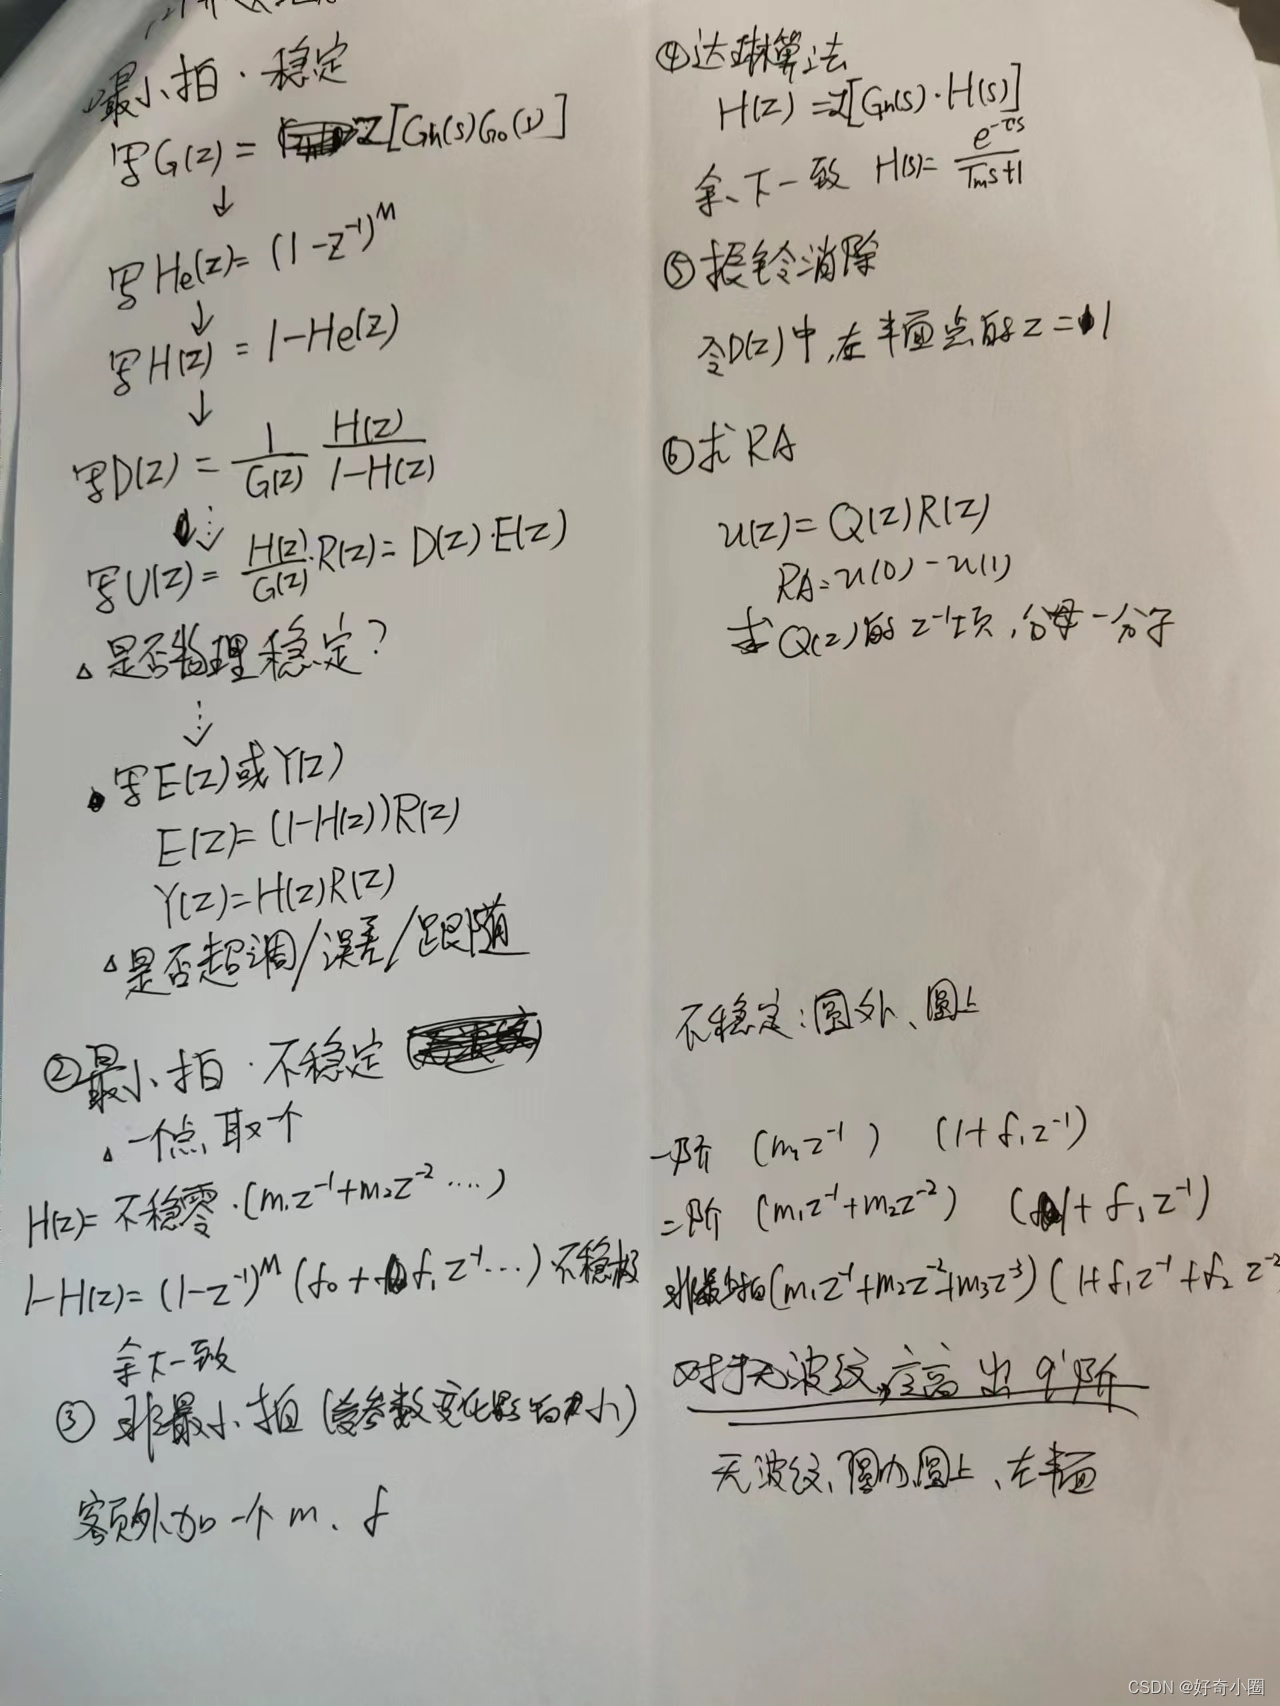 ①最小拍·稳定
写G(z) = Z[Gh(s)G0(s)]
↓
写He(z) = (1-z⁻¹)ᴹ
↓
写H(z) = 1-He(z)
↓
写D(z) = 1/G(z) H(z)/1-H(z)
写U(z) = H(z)/G(z)·R(z) = D(z)·E(z)
△是否物理稳定?
写E(z)或Y(z)
E(z)=(1-H(z))R(z)
Y(z)=H(z)R(z)
△是否超调/误差/跟随
②最小拍·不稳定
△一个点,取一个
H(z)=不稳零·(m₁z⁻¹+m₂z⁻²····)
1-H(z)=(1-z⁻¹)ᴹ(f₀+f₁z⁻¹···)不稳极
余下一致
③非最小拍(参数变化影响小)
额外加一个m、f
④达琳算法
H(z)=Z[Gh(s)·H(s)]
余下一致 H(s)=e^-τs/Tms+1
⑤振铃消除
令D(z)中,左半面点的z=1
⑥求RA
u(z)=Q(z)R(z)
RA=u(0)-u(1)
求Q(z)的z⁻¹项,分母-分子
不稳定:圆外、圆上
一阶 (m₁z⁻¹) (1+f₁z⁻¹)
二阶 (m₁z⁻¹+m₂z⁻²) (1+f₁z⁻¹)
非最小拍(m₁z⁻¹+m₂z⁻²+m₃z⁻³)(1+f₁z⁻¹+f₂z⁻²
对于无波纹,应高出q阶
无波纹,圆内,圆上、左半面
CSDN @好奇小圈